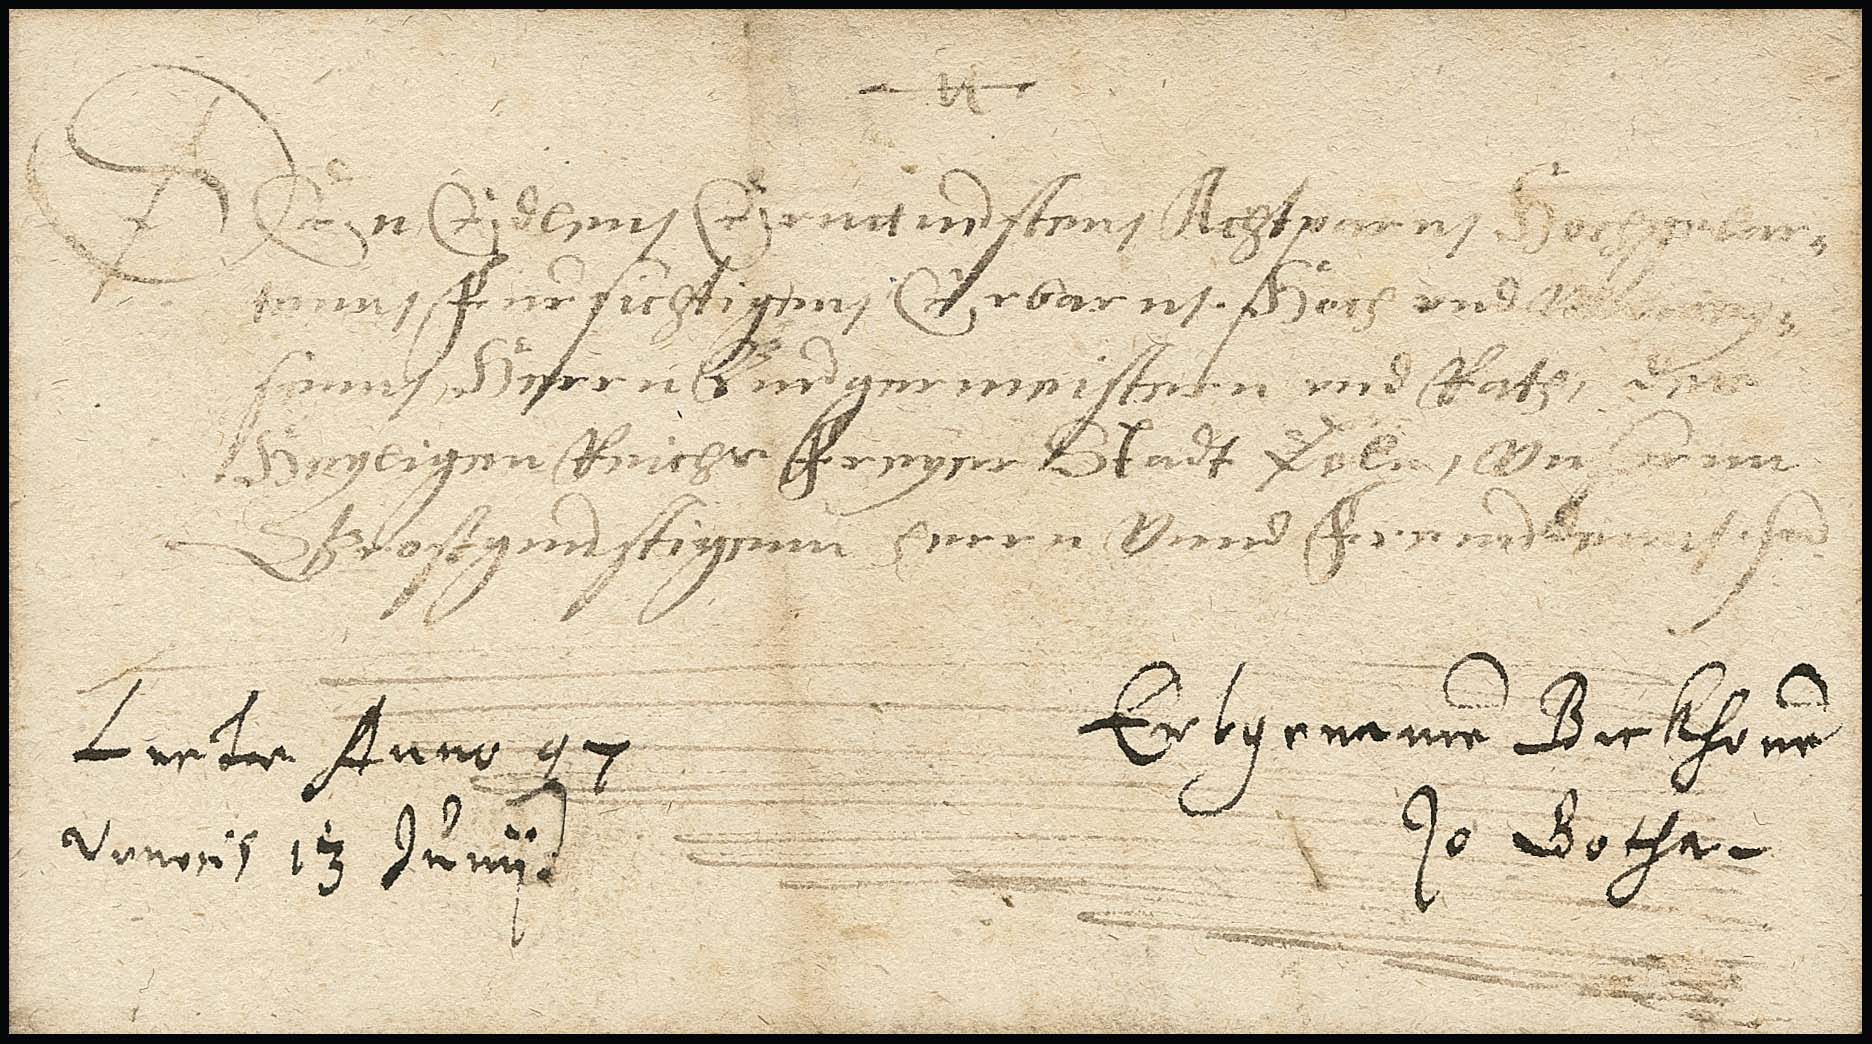 DEn Edlenn Ernuestenn Achtparnn Hochgelar-
tenn Fürsichtigenn Erbarnn Hoch vnd Wolweiß-
senn Herrn Burgermeistern vnd Rath, der
Heyligen Reichs Freyer Stadt Cöln, Vnsernn
Großgünstigenn herrn Vnnd Freundenn
Lecta Anno 97
Veneris 13 Junij
Erbgename Berkhoue
Jo Botha